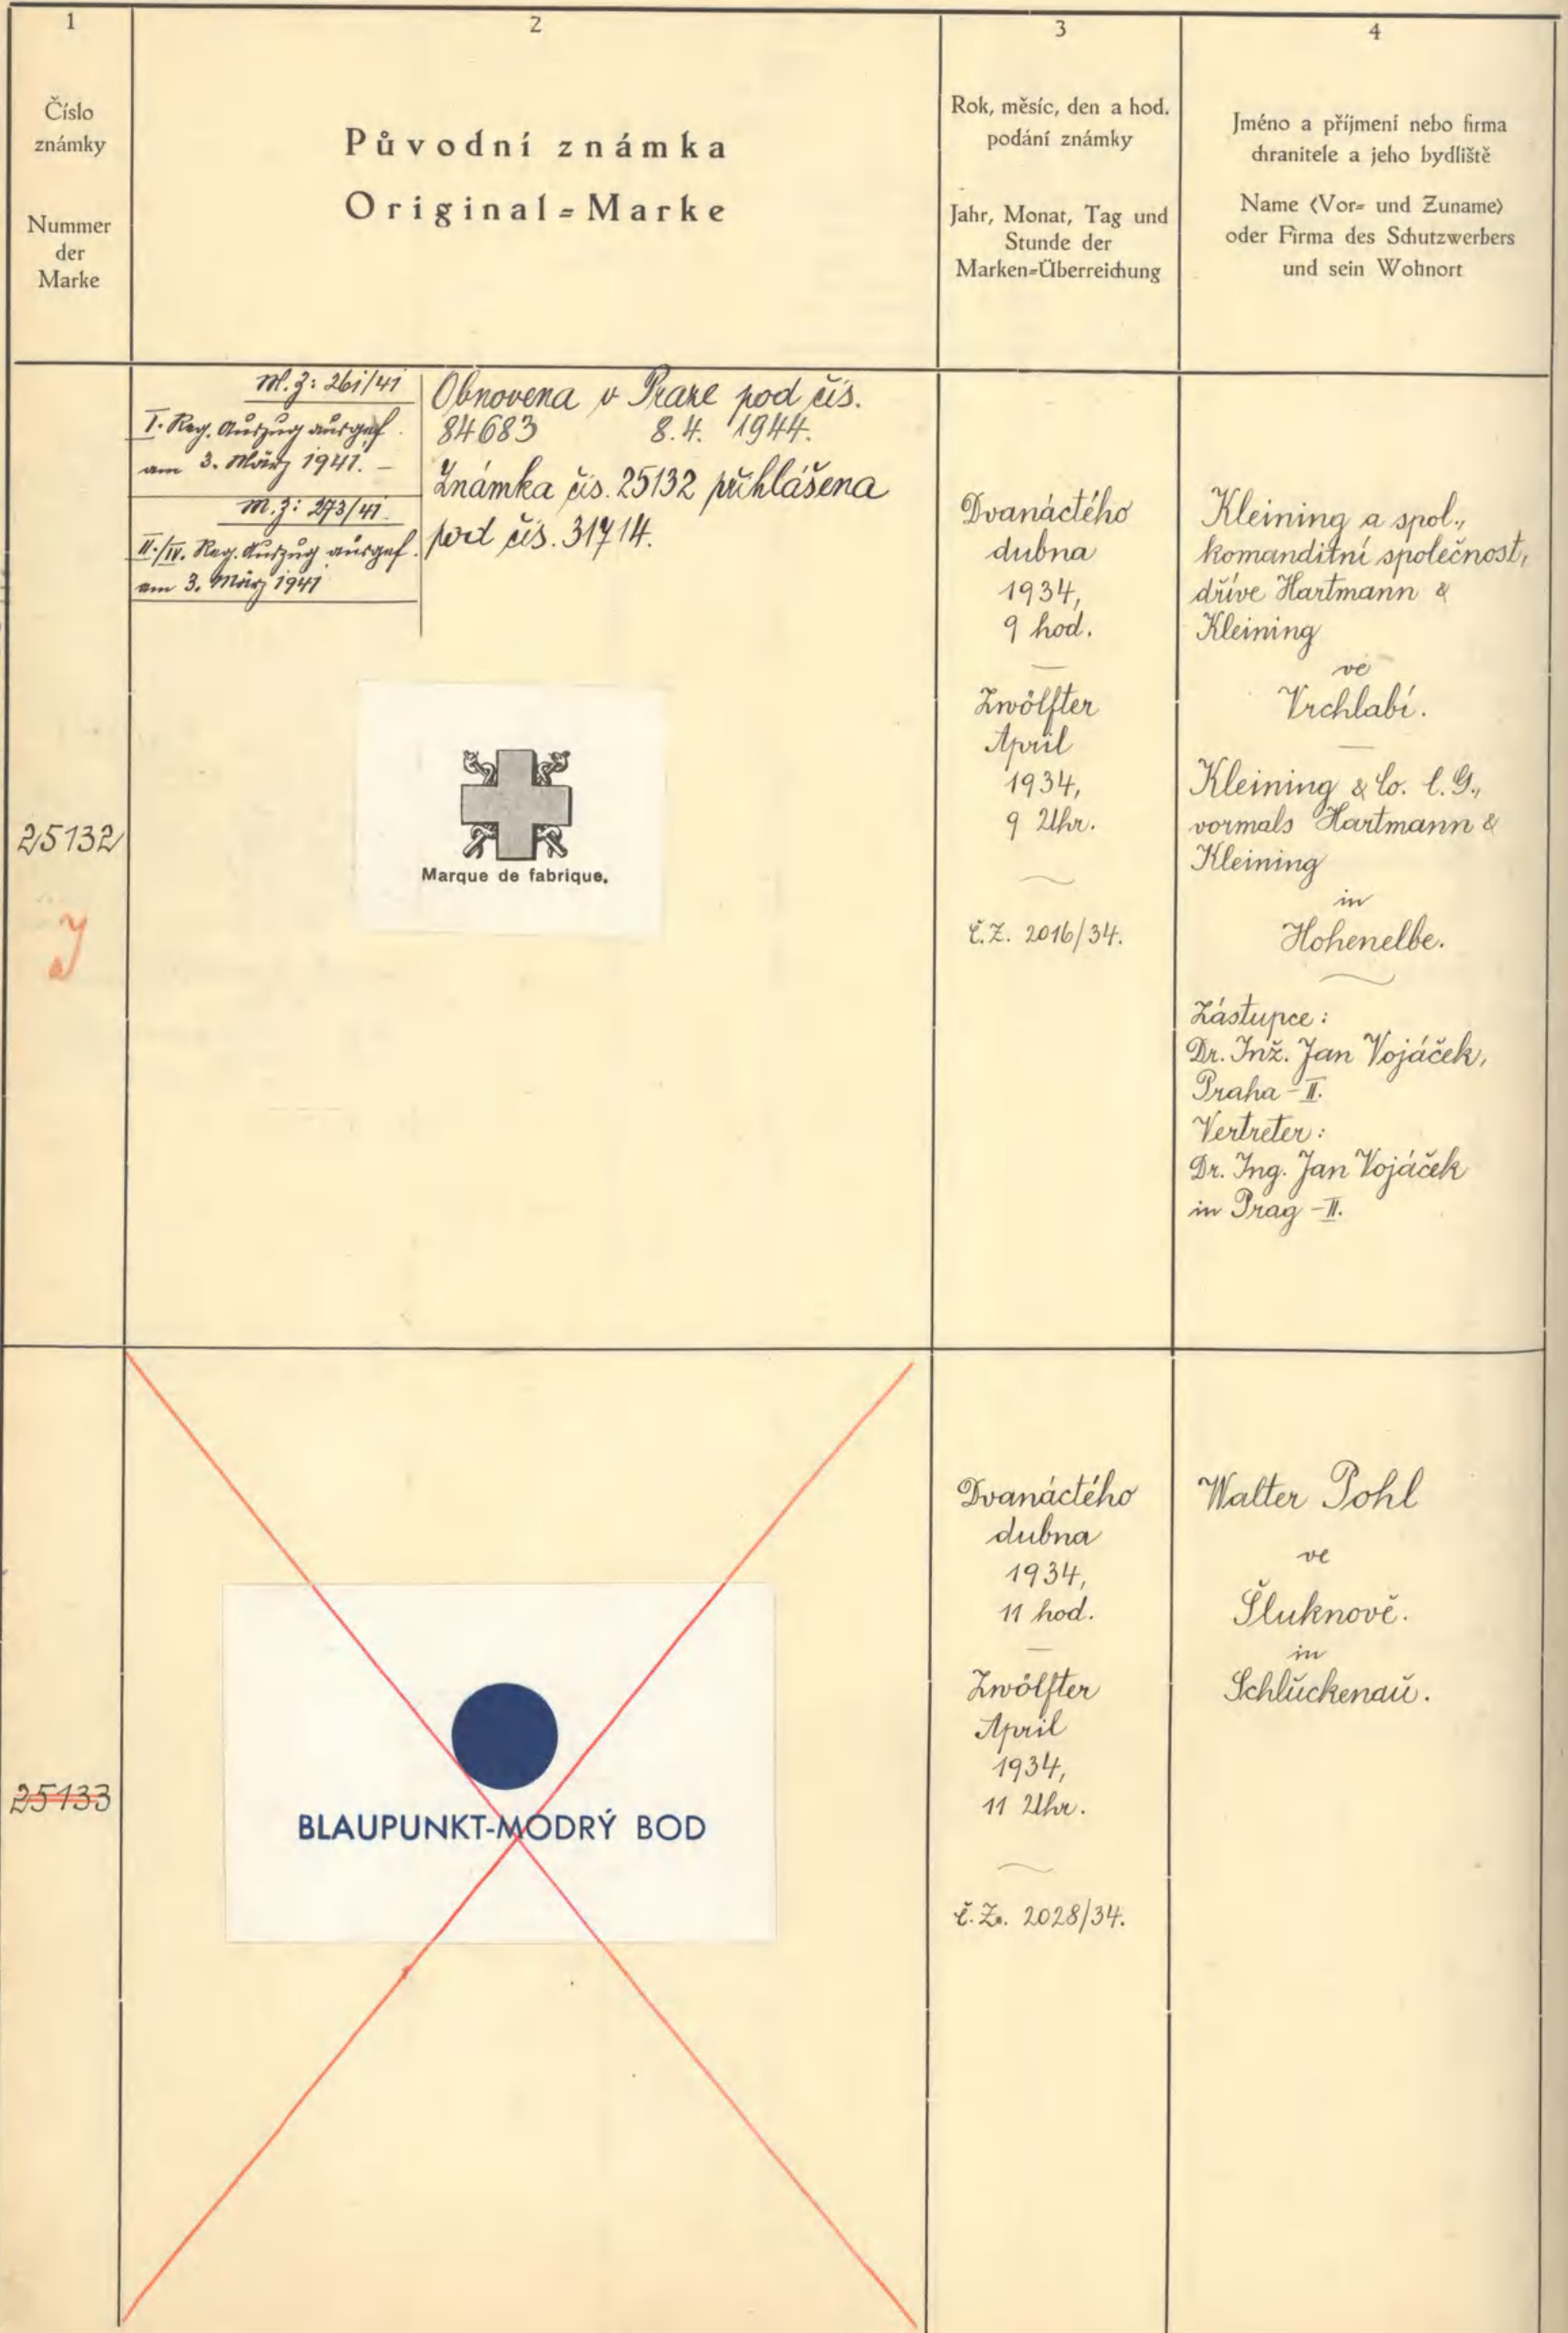 1
Číslo
známky
Nummer
der
Marke
2
Původní známka
Original=Marke
3
Rok, měsíc, den a hod.
podání známky
Jahr, Monat, Tag und
Stunde der
Marken=Überreichung
4
Jméno a příjmení nebo firma
chranitele a jeho bydliště
Name (Vor= und Zuname)
oder Firma des Schutzwerbers
und sein Wohnort
25132
J
M.Z: 261/41
I. Reg. Auszug ausgef.
am 3. März 1941. –
M.Z: 273/41.
II./IV. Reg. Auszug ausgef.
am 3. März 1941
Obnovena v Praze pod čís.
84683 8.4. 1944.
Známka čís. 25132 přihlášena
pod čís. 31714.
Marque de fabrique.
Dvanáctého
dubna
1934,
9 hod.
Zwölfter
April
1934,
9 Uhr.
Č.Z. 2016/34.
Kleining a spol.,
komanditní společnost,
dříve Hartmann &
Kleining
ve
Vrchlabí.
Kleining & Co. C.G.,
vormals Hartmann &
Kleining
in
Hohenelbe.
Zástupce:
Dr. Inž. Jan Vojáček,
Praha-II.
Vertreter:
Dr. Ing. Jan Vojáček
in Prag-II.
25133
BLAUPUNKT-MODRÝ BOD
Dvanáctého
dubna
1934,
11 hod.
Zwölfter
April
1934,
11 Uhr.
Č.Z. 2028/34.
Walter Pohl
ve
Šluknově.
in
Schluckenau.